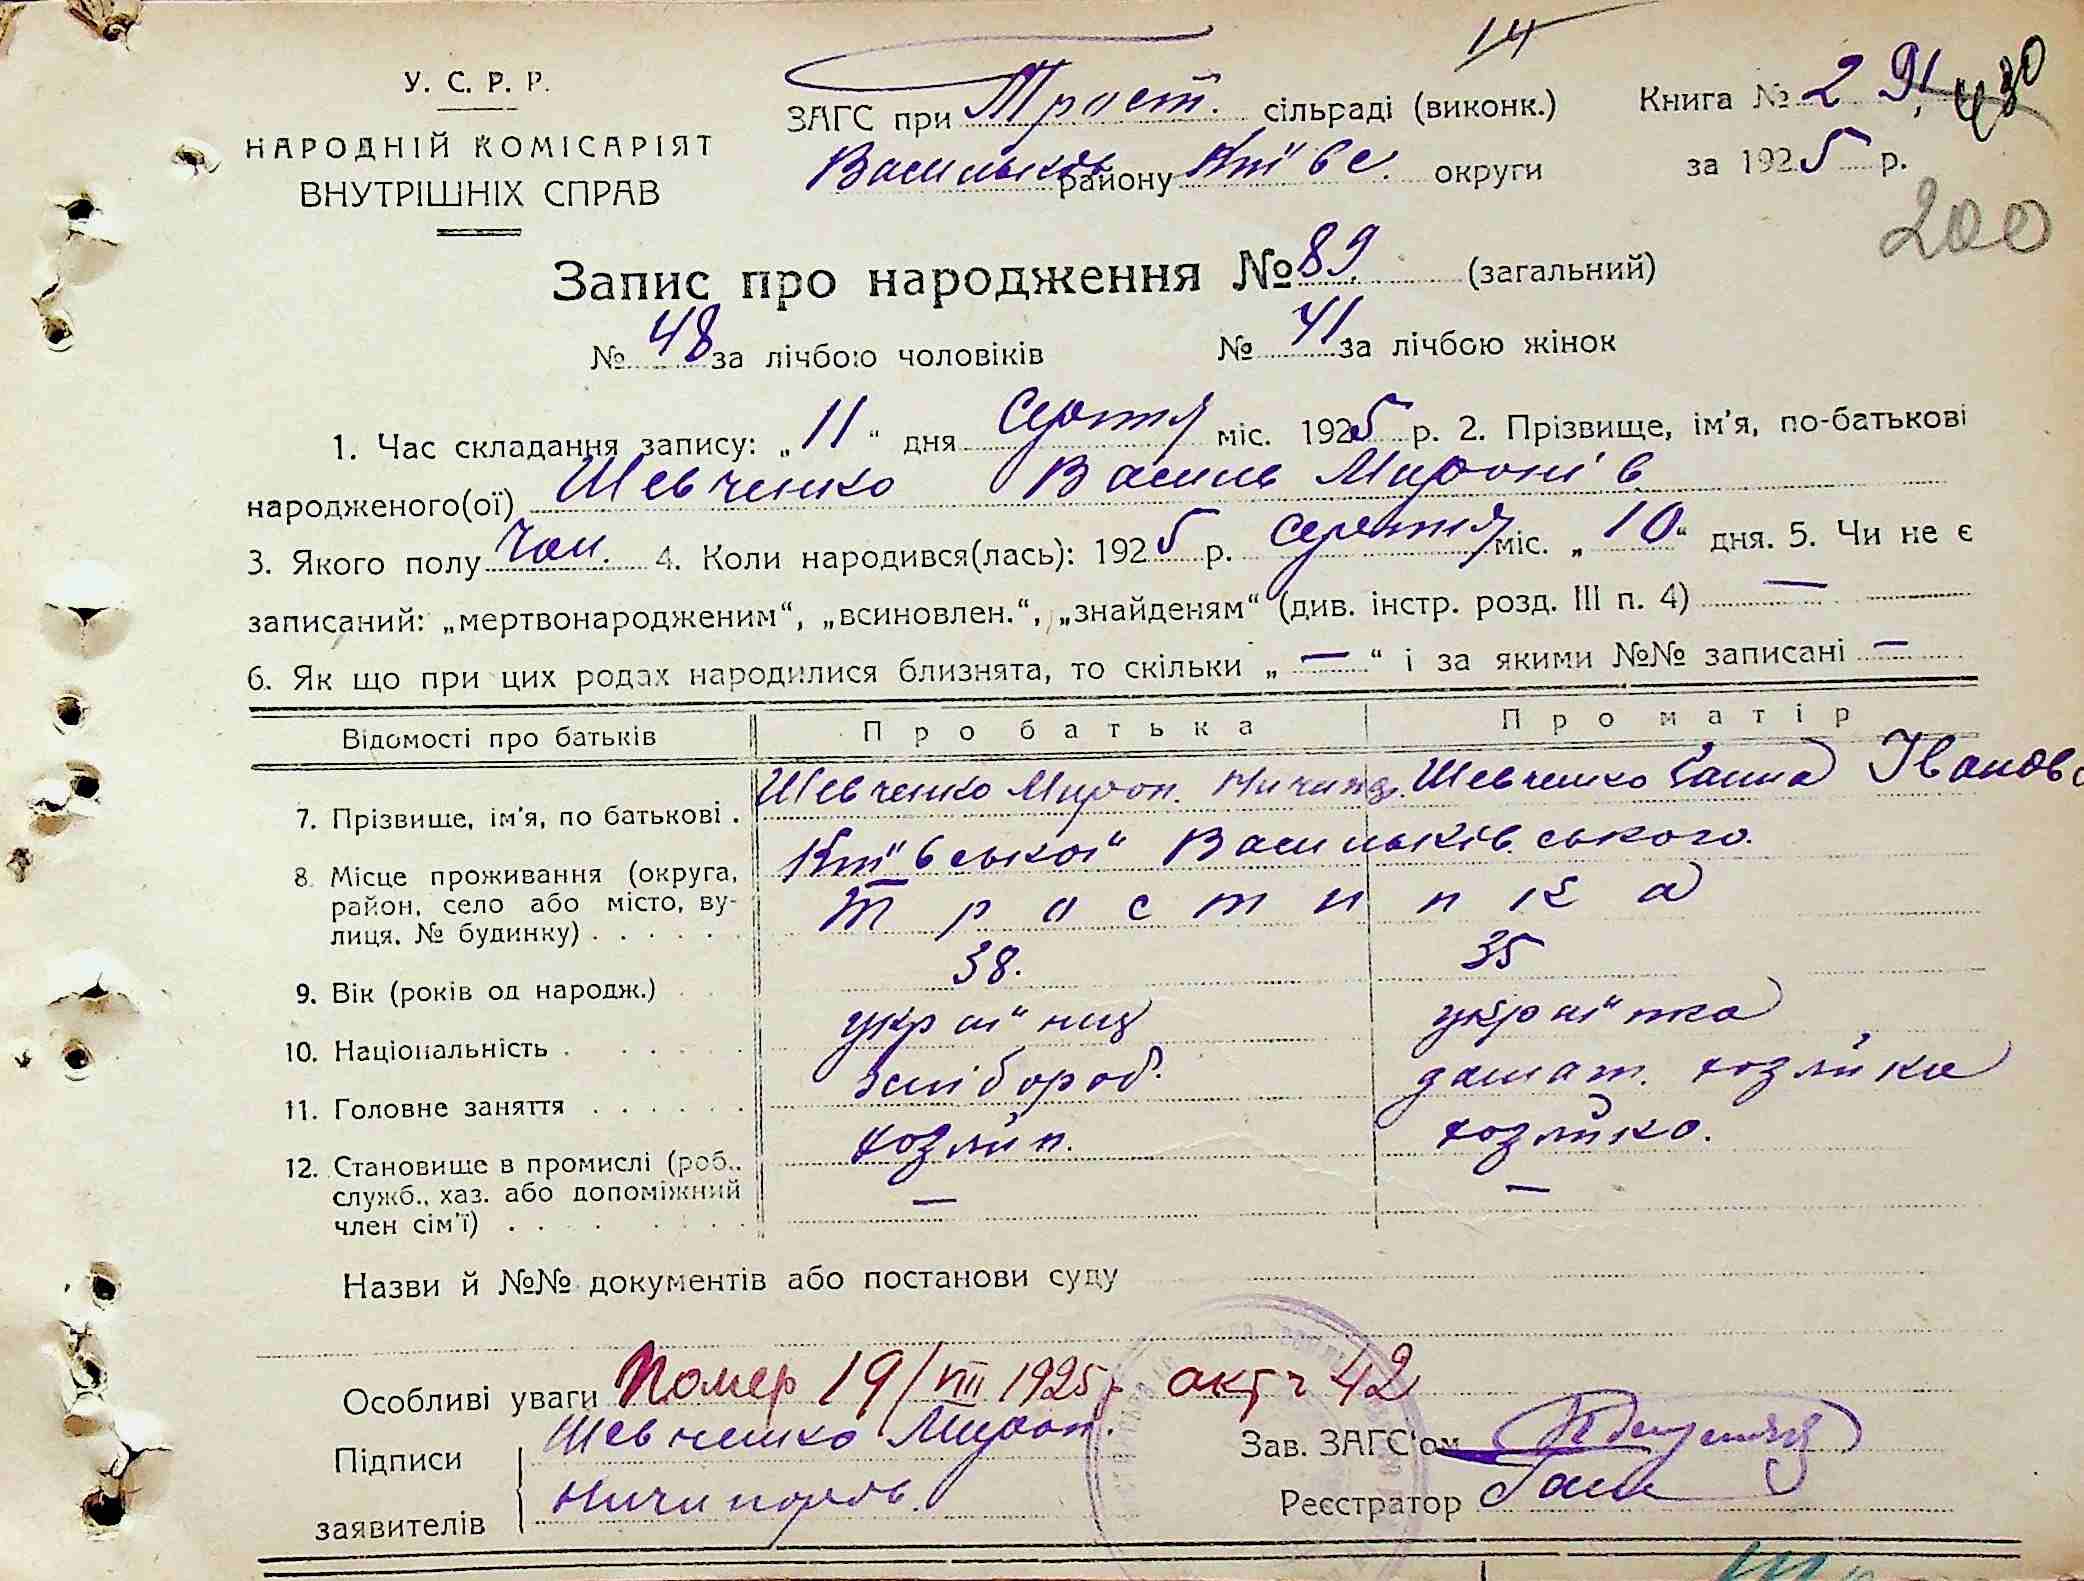 14
У. С. Р. Р.
НАРОДНІЙ КОМІСАРІЯТ
ВНУТРІШНІХ СПРАВ
ЗАГС при Трост. сільраді (виконк.)
Васильків району Київс. округи
Книга № 2 91 430
за 1925 р.
200
Запис про народження № 89 (загальний)
№ 48 за лічбою чоловіків № 41 за лічбою жінок
1. Час складання запису: „11“ дня Серпня міс. 1925 р. 2. Прізвище, ім'я, по-батькові
народженого(ої) Шевченко Василь Миронів
3. Якого полу Чол. 4. Коли народився(лась): 1925 р. Серпня міс. „10“ дня. 5. Чи не є
записаний: „мертвонародженим“, „всиновлен.“, „знайденям“ (див. інстр. розд. III п. 4) —
6. Як що при цих родах народилися близнята, то скільки „—“ і за якими №№ записані —
Відомості про батьків Про батька Про матір
7. Прізвище, ім'я, по батькові . Шевченко Мирон. Ничип. Шевченко Ганна Іванов
8. Місце проживання (округа, район, село або місто, вулиця. № будинку) . . . . . Київської Васильківського
Тростинка
9. Вік (років од народж.) 38. 35
10. Національність . українц українка
11. Головне заняття . . . . . . хлібороб. домат. хозяйка
12. Становище в промислі (роб., служб., хаз. або допоміжний член сім'ї) . . . хозяїн. хозяйка.
— —
Назви й №№ документів або постанови суду
Особливі уваги Помер 19/VIII 1925 р акт ч 42
Підписи Шевченко Мирон.
заявителів Ничипоров.
Зав. ЗАГС'ом
Реєстратор